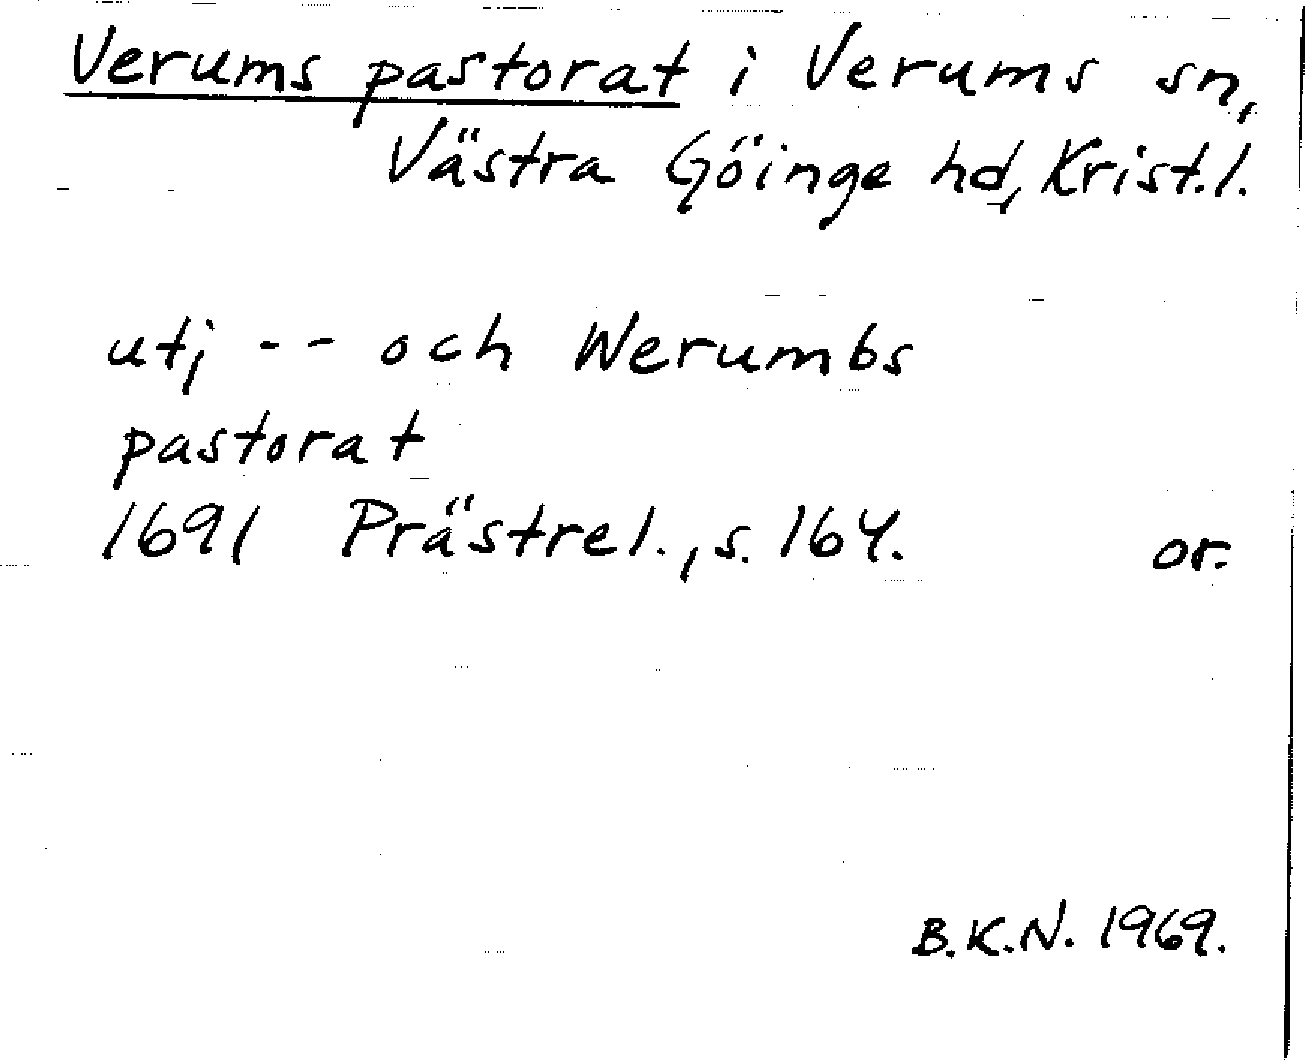 Verums pastorat i Verums sn,
Västra Göinge hd, Krist.l.
utj -- och Werumbs
pastorat
1691 Prästrel., s. 164. or.
B.K.N. 1969.